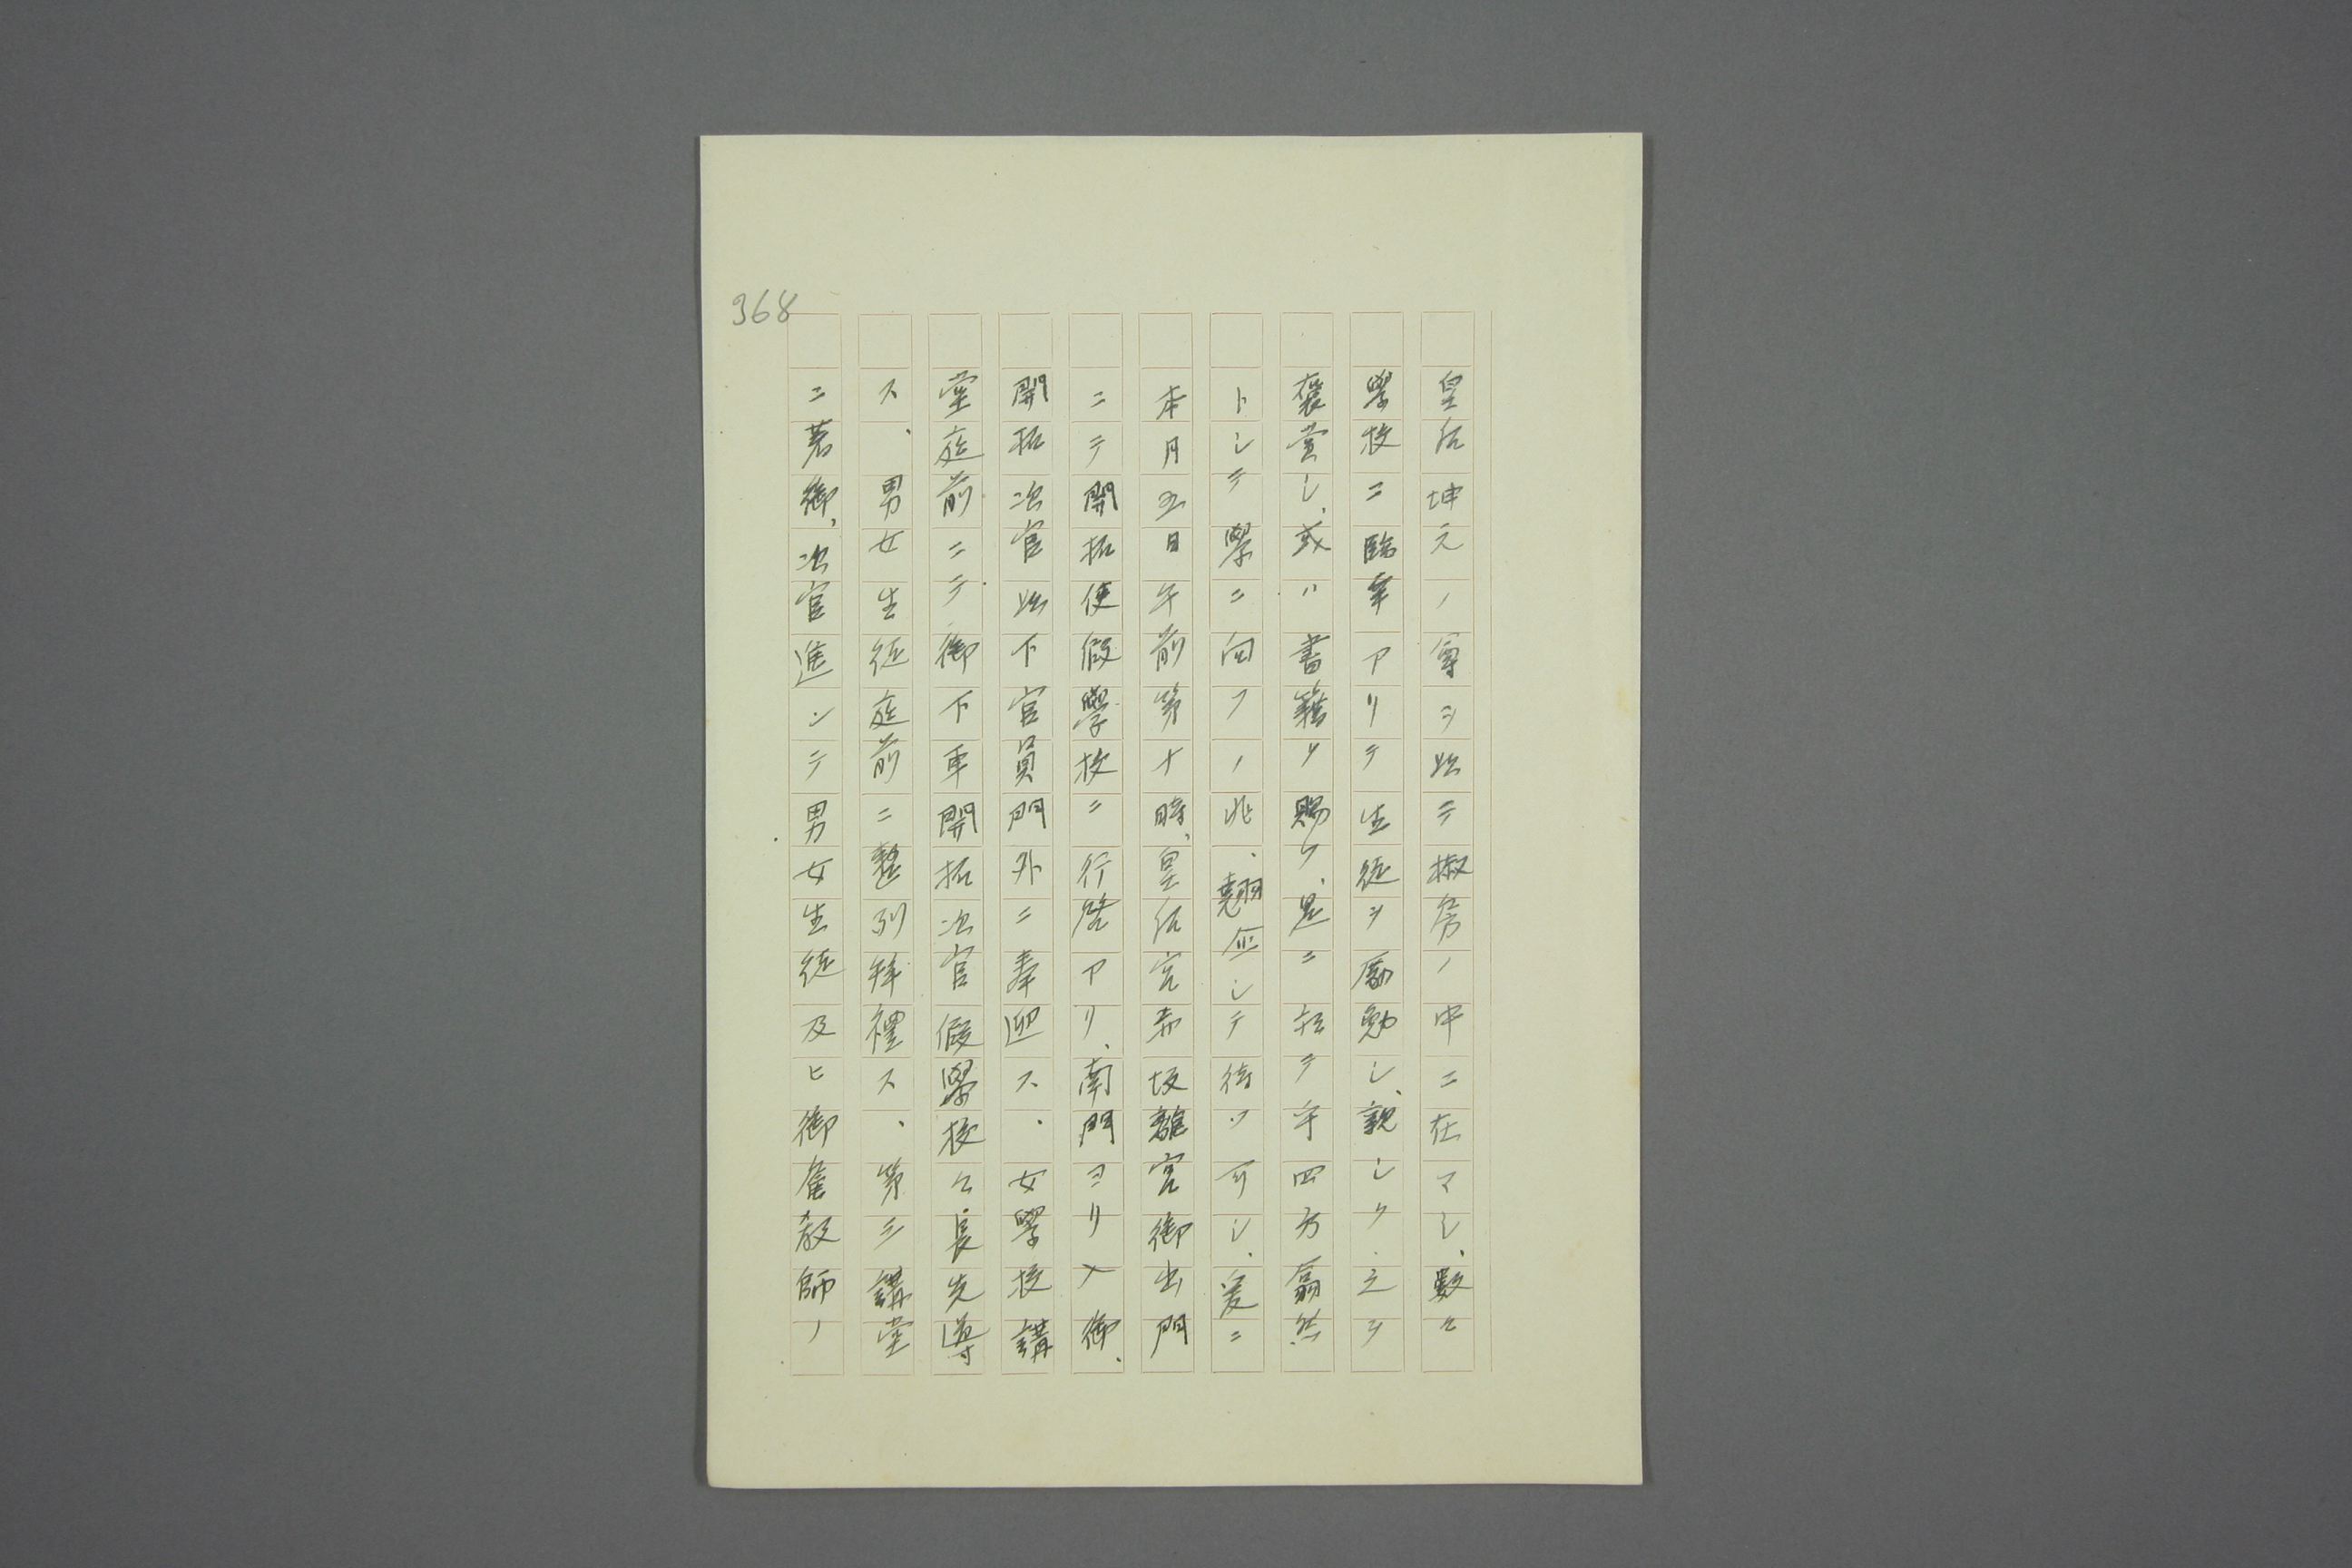 368
皇后坤元ノ尊ヲ以テ椒房ノ中ニ在マシ、数々
學校ニ臨幸アリテ生徒ヲ勵勉シ、親シク之ヲ
褒賞シ、或ハ書籍ヲ賜フ、是ニ於テ乎四方翕然
トシテ學ニ向フノ兆、翹企シテ待ツ可シ、爰ニ
本月五日午前第十時、皇后宮赤坂離宮御出門
ニテ開拓使假學校ニ行啓アリ、南門ヨリ入御、
開拓次官以下官員門外ニ奉迎ス、女學校講
堂庭前ニテ御下車開拓次官假學校々長先導
ス、男女生徒庭前ニ整列拜禮ス、第三講堂
ニ著御、次官進ンテ男女生徒及ヒ御雇教師ノ